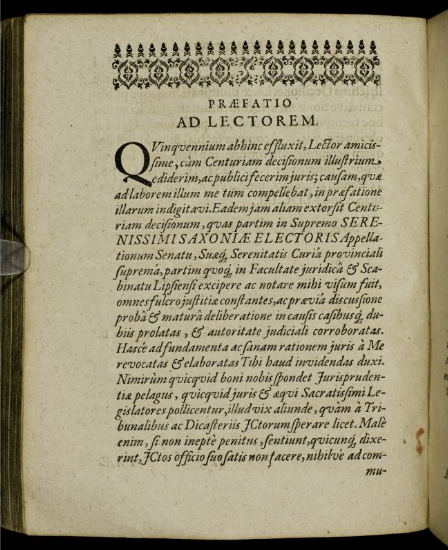 PRÆFATIO
AD LECTOREM.
QVinqvennium abhinc effluxit, Lector amicis-
sime, cùm Centuriam decisionum illustrium
ediderim, ac publici fecerim juris; causam, qvæ
ad laborem illum me tum compellebat, in præfatione
illarum indigitavi. Eadem jam aliam extorsit Centu-
riam decisionum, qvas partim in Supremo SERE-
NISSIMI SAXONIÆ ELECTORIS Appella-
tionum Senatu, Suæq; Serenitatis Curiâ provinciali
supremâ, partim qvoq; in Facultate juridicâ & Sca-
binatu Lipsiensi excipere ac notare mihi visum fuit,
omnes fulcro justitiæ constantes, ac præviâ discussione
probâ & maturâ deliberatione in causis casibusq; du-
biis prolatas, & autoritate judiciali corroboratas.
Hasce ad fundamenta ac sanam rationem juris à Me
revocatas & elaboratas Tibi haud invidendas duxi.
Nimirùm qvicqvid boni nobis spondet Jurispruden-
tiæ pelagus, qvicqvid juris & æqvi Sacratissimi Le-
gislatores pollicentur, illud vix aliunde, qvàm à Tri-
bunalibus ac Dicasteriis JCtorum sperare licet. Malè
enim, si non ineptè penitus, sentiunt, qvicunq; dixe-
rint, JCtos officio suo satis non facere, nihilvè ad com-
mu-